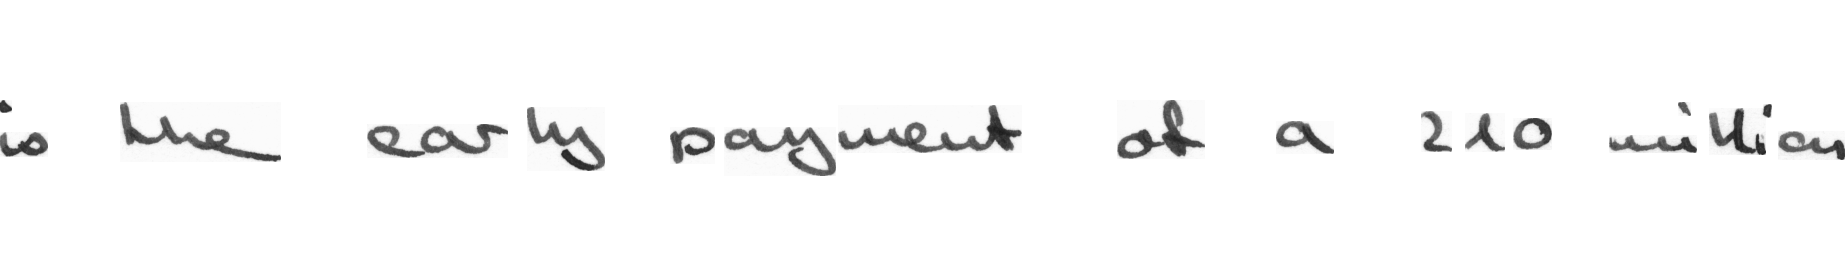 is the early payment of a 210 million